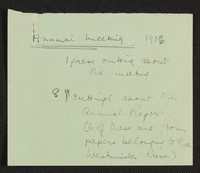 Annual meeting 1938
1 press cutting about
the meeting
8 cuttings about the
Annual Report
(6 of these are from
papers belonging to the
Westminster Group)